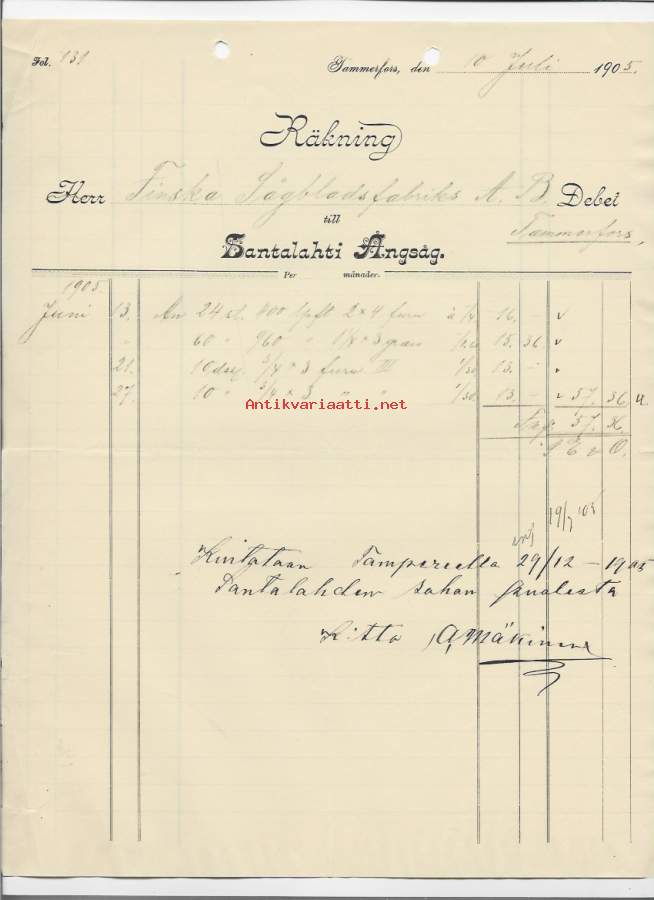 Fol. 131 Tammerfors, den 10 Juli 1905.
Räkning
Herr Finska Sågbladsfabriks A. B. Debet
till Tammerfors,
Santalahti Ångsåg.
Per månader.
1905.
Juni 13. An 24 st. 400 lpft 2 × 4 furu à 1/4 16. –
" 60 " 960 " 1 1/4 × 3 gran 15. 36
21. 10 3/4 × 3 furu III 1/30 13. –
27. 10 " 3/4 × 3 " " 1/30. 13. – 57. 36
Antikvariaatti.net
Fmg. 57. 36.
S. E. v. O.
19/7 '05
Kvitataan Tampereella 29/12 – 1905
Santalahden sahan puolesta
Kitto A, Mäkinen